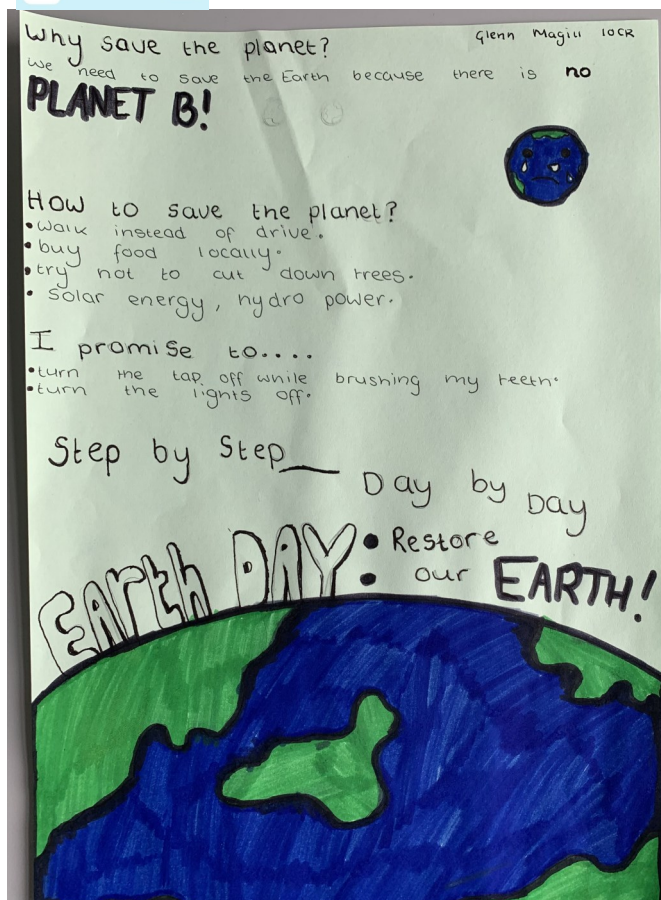 Why save the planet?
Glenn Magill 10CR
We need to save the Earth because there is no
PLANET B!
How to save the planet?
•walk instead of drive.
•buy food locally.
•try not to cut down trees.
• solar energy, hydro power.
I promise to....
•turn the tap off while brushing my teeth.
•turn the lights off.
Step by Step_
Day by Day
EArth DAY: Restore
our EARTH!